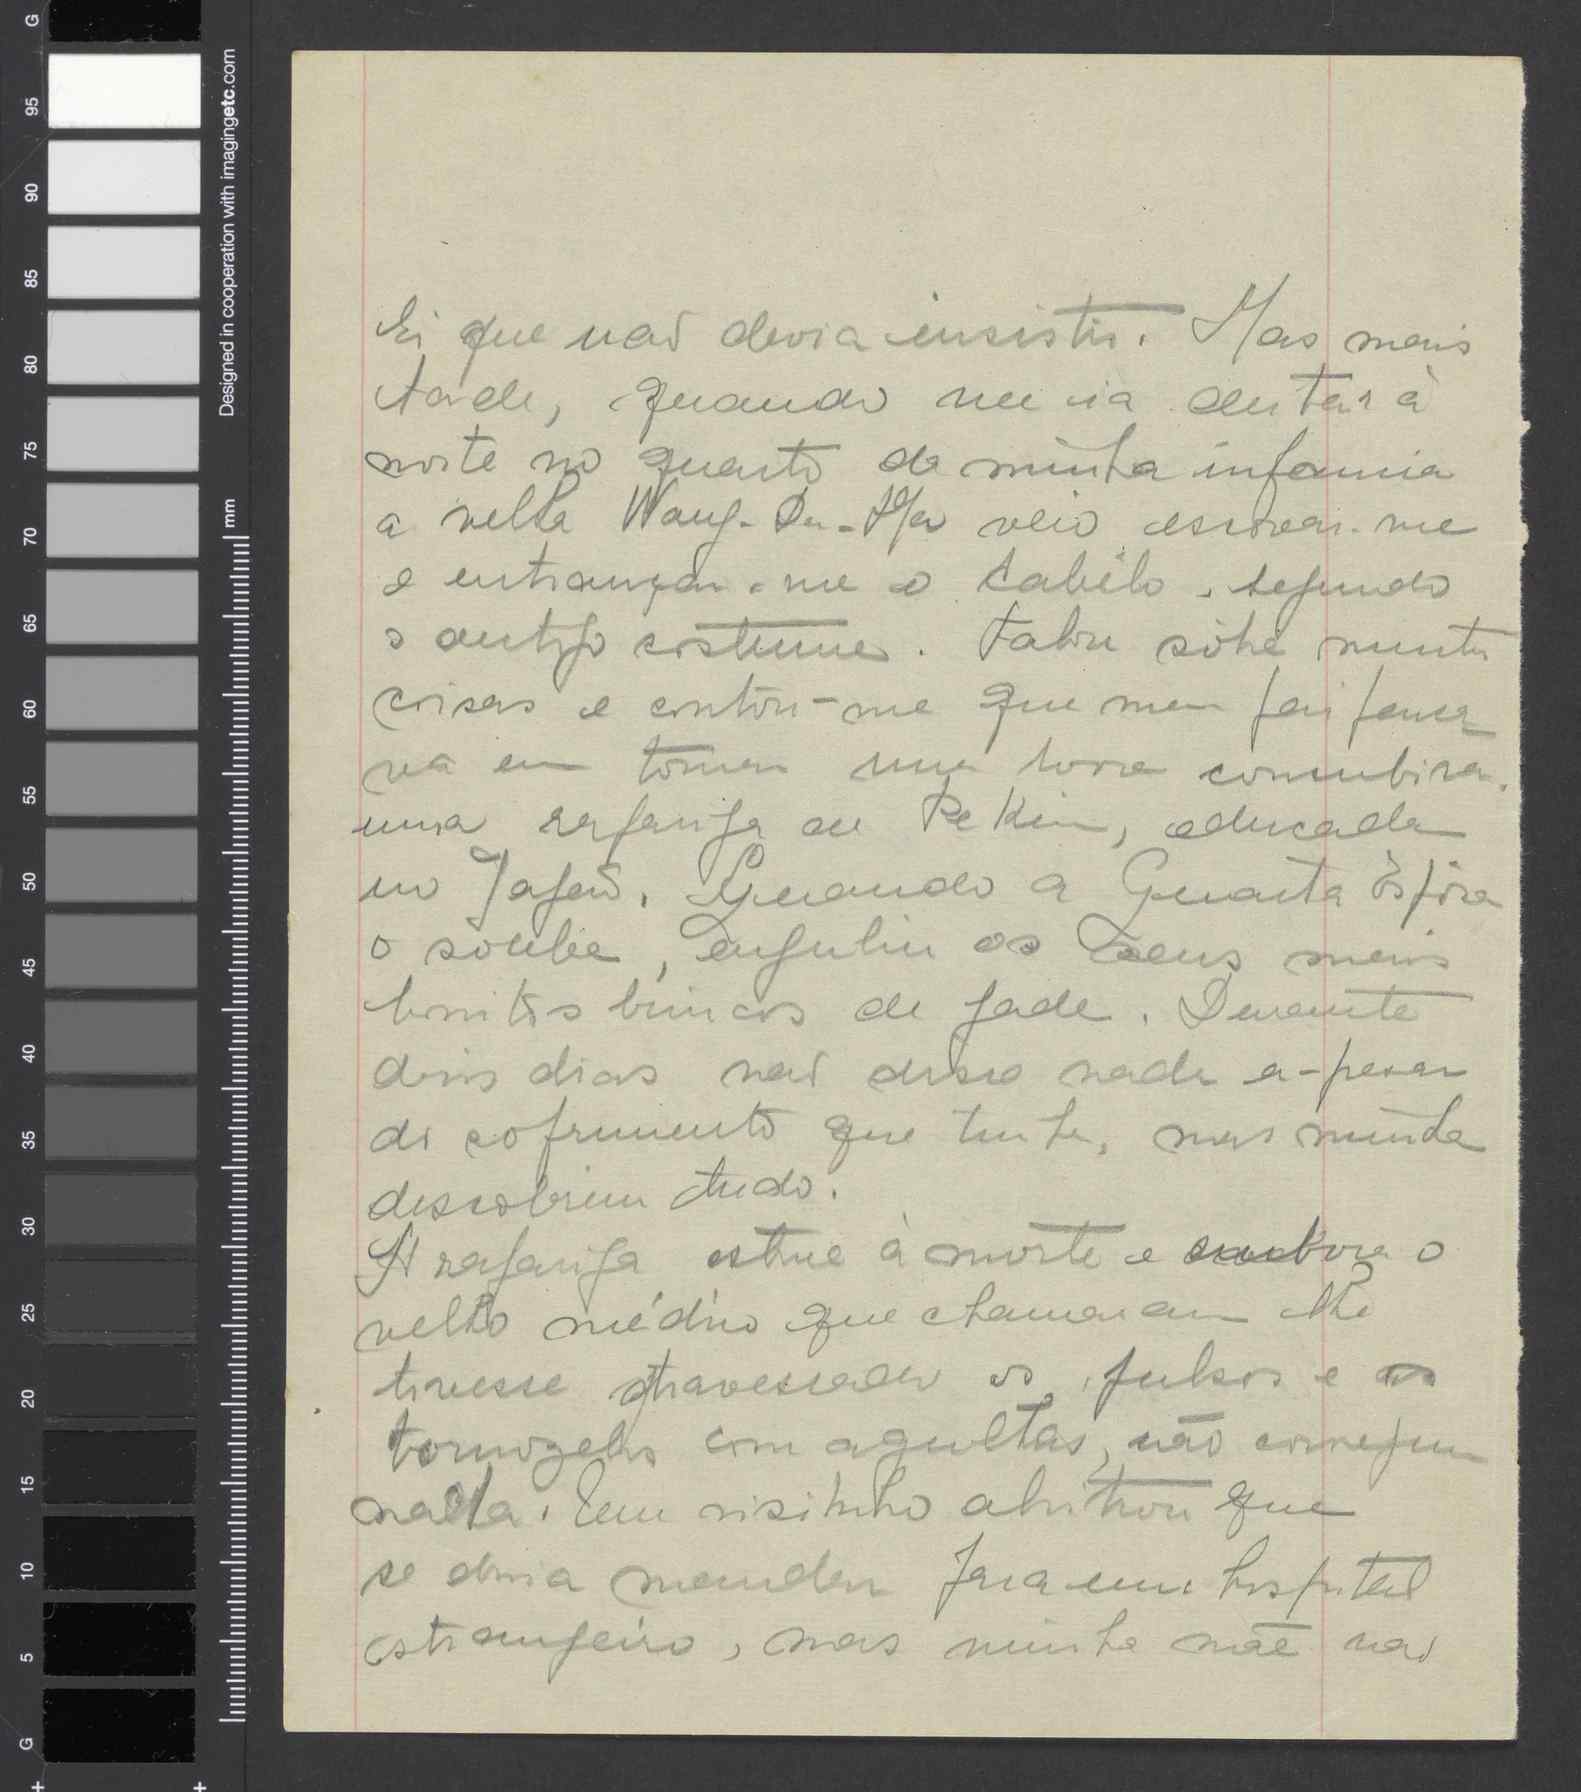 G
95
90
85
80
75
70
65
60
55
50
45
40
35
30
25
20
15
10
5
G
Designed in cooperation with imagingetc.com
mm
que não devia insistir. Mas mais
tarde, quando me ia deitar à
noite no quarto da minha infancia
a velha Wang-Da-Ma veio escovar-me
e entrançar-me o cabêlo, segundo
o antigo costume. Falou sôbre muitas
coisas e contou-me que meu pai pensa
va em tomar uma nova concubina.
uma rapariga de Pekin, educada
no Japão. Quando a Quarta Espôsa
o soube, enguliu os seus mais
bonitos brincos de jade. Durante
dois dias não disse nada a-pesar
do sofrimento que tinha, mas minha
descobriu tudo.
A rapariga esteve à morte e embora o
velho médico que chamaram lhe
tivesse atravessado os pulsos e os
tornozelos com agulhas, não conseguiu
nada. Um visinho alvitrou que
se devia mandar para um hospital
estrangeiro, mas minha mãe não